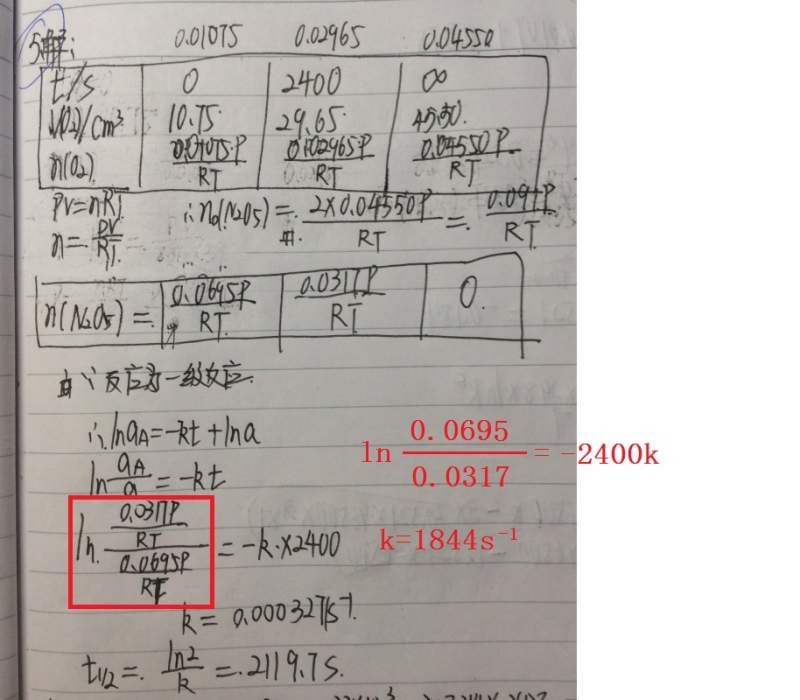 5解: 0.01075 0.02965 0.04550
t/s 0 2400 ∞
V(O₂)/cm³ 10.75 29.65 45.50
n(O₂) 0.01075P/RT 0.02965P/RT 0.04550P/RT
PV=nRT
n=PV/RT
∴n₀(N₂O₅)=2×0.04550P/RT=0.091P/RT
n(N₂O₅)= 0.0695P/RT 0.0317P/RT 0
∵反应为一级反应
∴lnaA=-kt+lna
ln aA/a=-kt
ln (0.0317P/RT)/(0.0695P/RT)=-k×2400
k=0.000327/s⁻¹
t1/2=ln2/k=2119.7s
ln 0.0695/0.0317=-2400k
k=1844s⁻¹